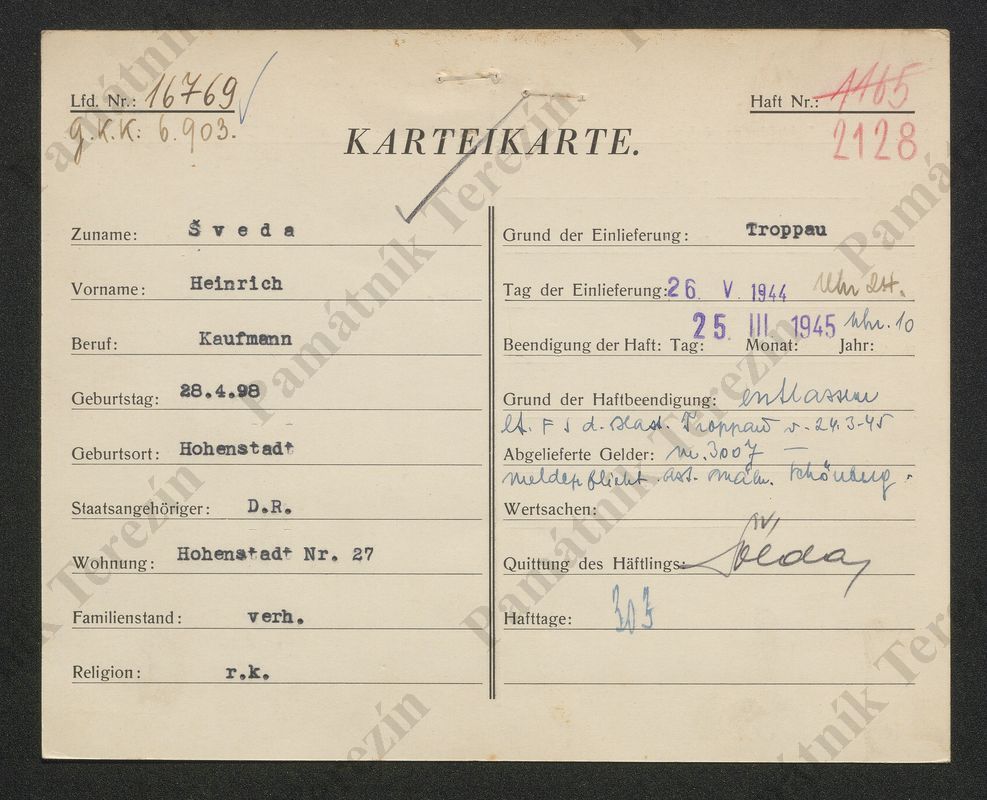 Lfd. Nr.: 16769
g.K.K: 6.903.
Haft Nr.: 1165
2128
KARTEIKARTE.
Zuname: Šveda
Vorname: Heinrich
Beruf: Kaufmann
Geburtstag: 28.4.98
Geburtsort: Hohenstadt
Staatsangehöriger: D.R.
Wohnung: Hohenstadt Nr. 27
Familienstand: verh.
Religion: r.k.
Grund der Einlieferung: Troppau
Tag der Einlieferung: 26. V. 1944 Uhr
25. III 1945 Uhr. 10
Beendigung der Haft: Tag: Monat: Jahr:
Grund der Haftbeendigung: entlassen
lt. F S d. Troppau v. 24.3-45
Abgelieferte Gelder: nr. 3007 –
meldepflicht. Schönberg.
Wertsachen:
Quittung des Häftlings:
Hafttage: 303
Památník Terezín